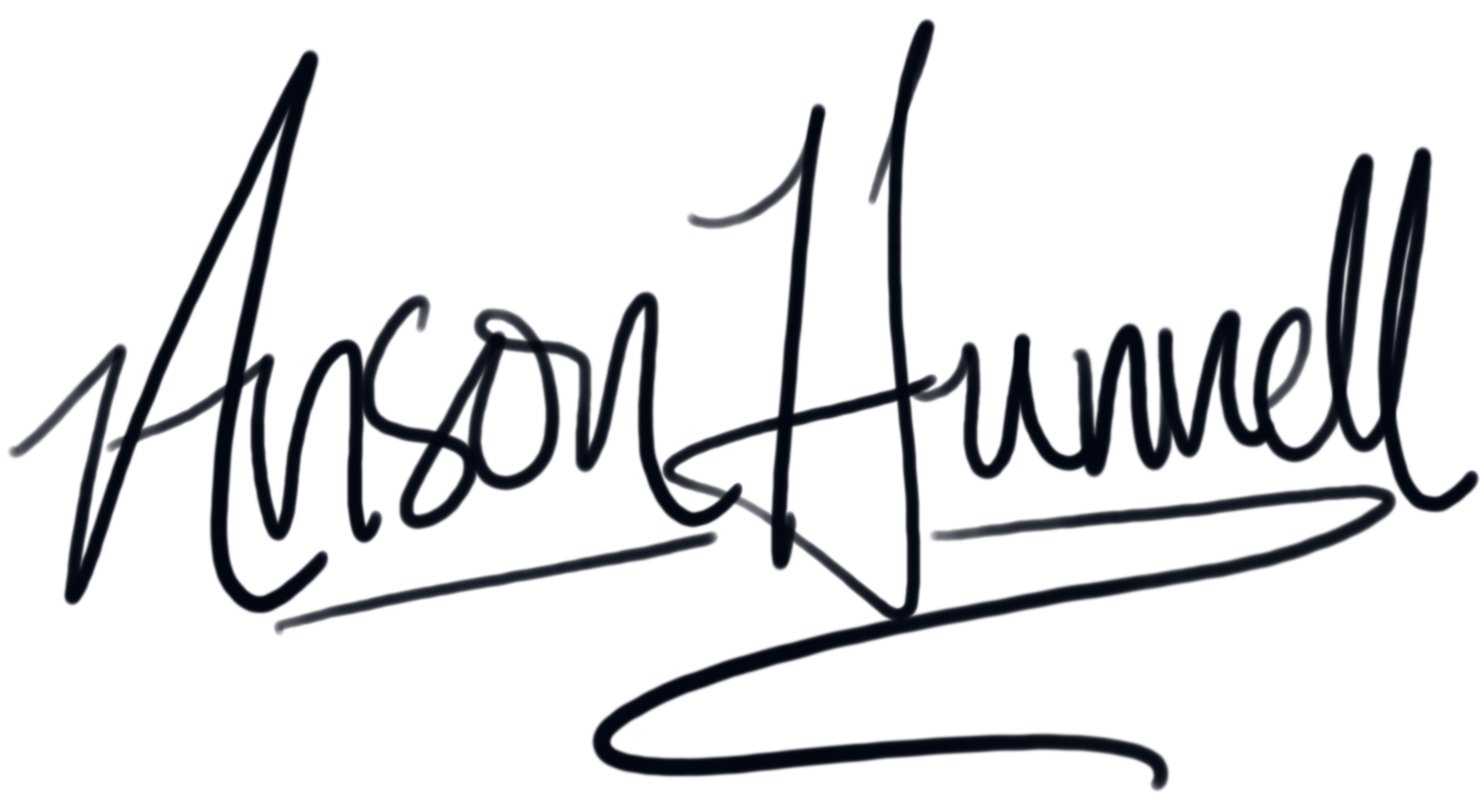 Anson Hunnell